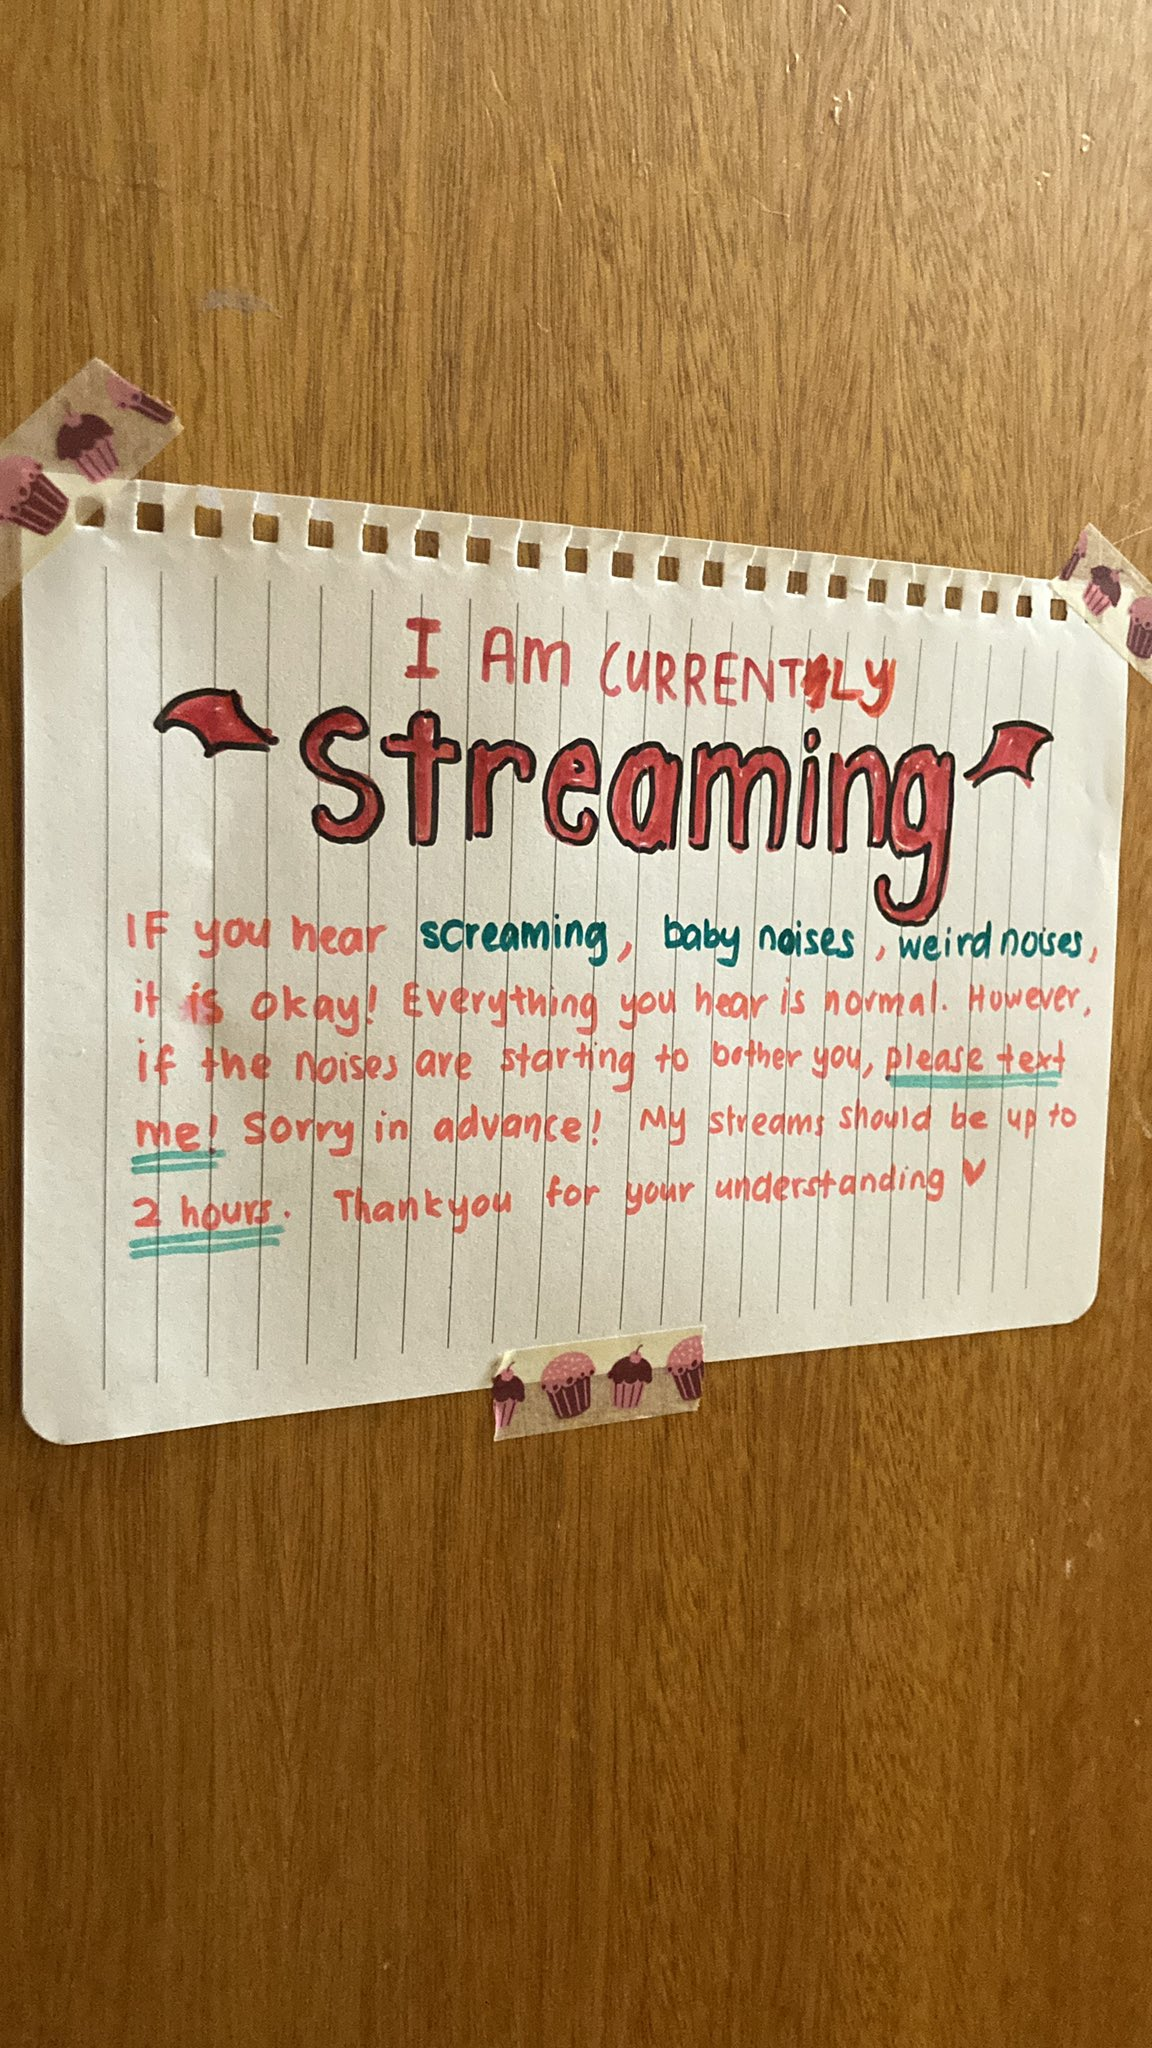 I AM CURRENTLY
Streaming
IF you hear screaming, baby noises, weird noises,
it is okay! Everything you hear is normal. However,
if the noises are starting to bother you, please text
me! Sorry in advance! My streams should be up to
2 hours. Thankyou for your understanding ♥